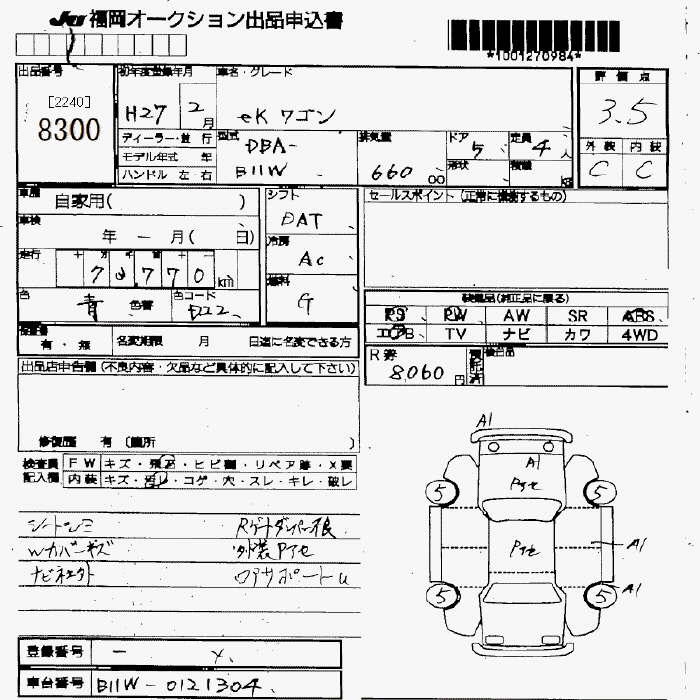 JU 福岡オークション出品申込書
*1001270984*
出品番号
[2240]
8300
初年度登録年月
H27 2月
車名・グレード
eK ワゴン
評価点
3.5
ディーラー・並行
モデル年式 年
ハンドル 左 右
型式
DBA-
B11W
排気量
660 00
ドア
5
形状
定員
4人
積載
kg
外装 内装
C C
車歴
自家用( )
車検
年 - 月( 日)
走行
km
色
青
色替
色コード
シフト
DAT
冷房
AC
燃料
G
セールスポイント (正常に機能するもの)
装備品(純正品に限る)
PS PW AW SR ABS
エアB TV ナビ カワ 4WD
保証書
有・無
名変期限 月 日迄に名変できる方
R券
8060円
検出品
出品店申告欄 (不良内容・欠品など具体的に記入して下さい)
修復歴 有 (箇所 )
検査員記入欄
FW キズ・飛石・ヒビ割・リペア跡・X要
内装 キズ・汚レ・コゲ・穴・スレ・キレ・破レ
シートシミ
Wカバーキズ
外装Pアセ
A1
A1
Pアセ
5
5
Pアセ
A1
5
5
A1
登録番号 -
車台番号 B11W-0121304